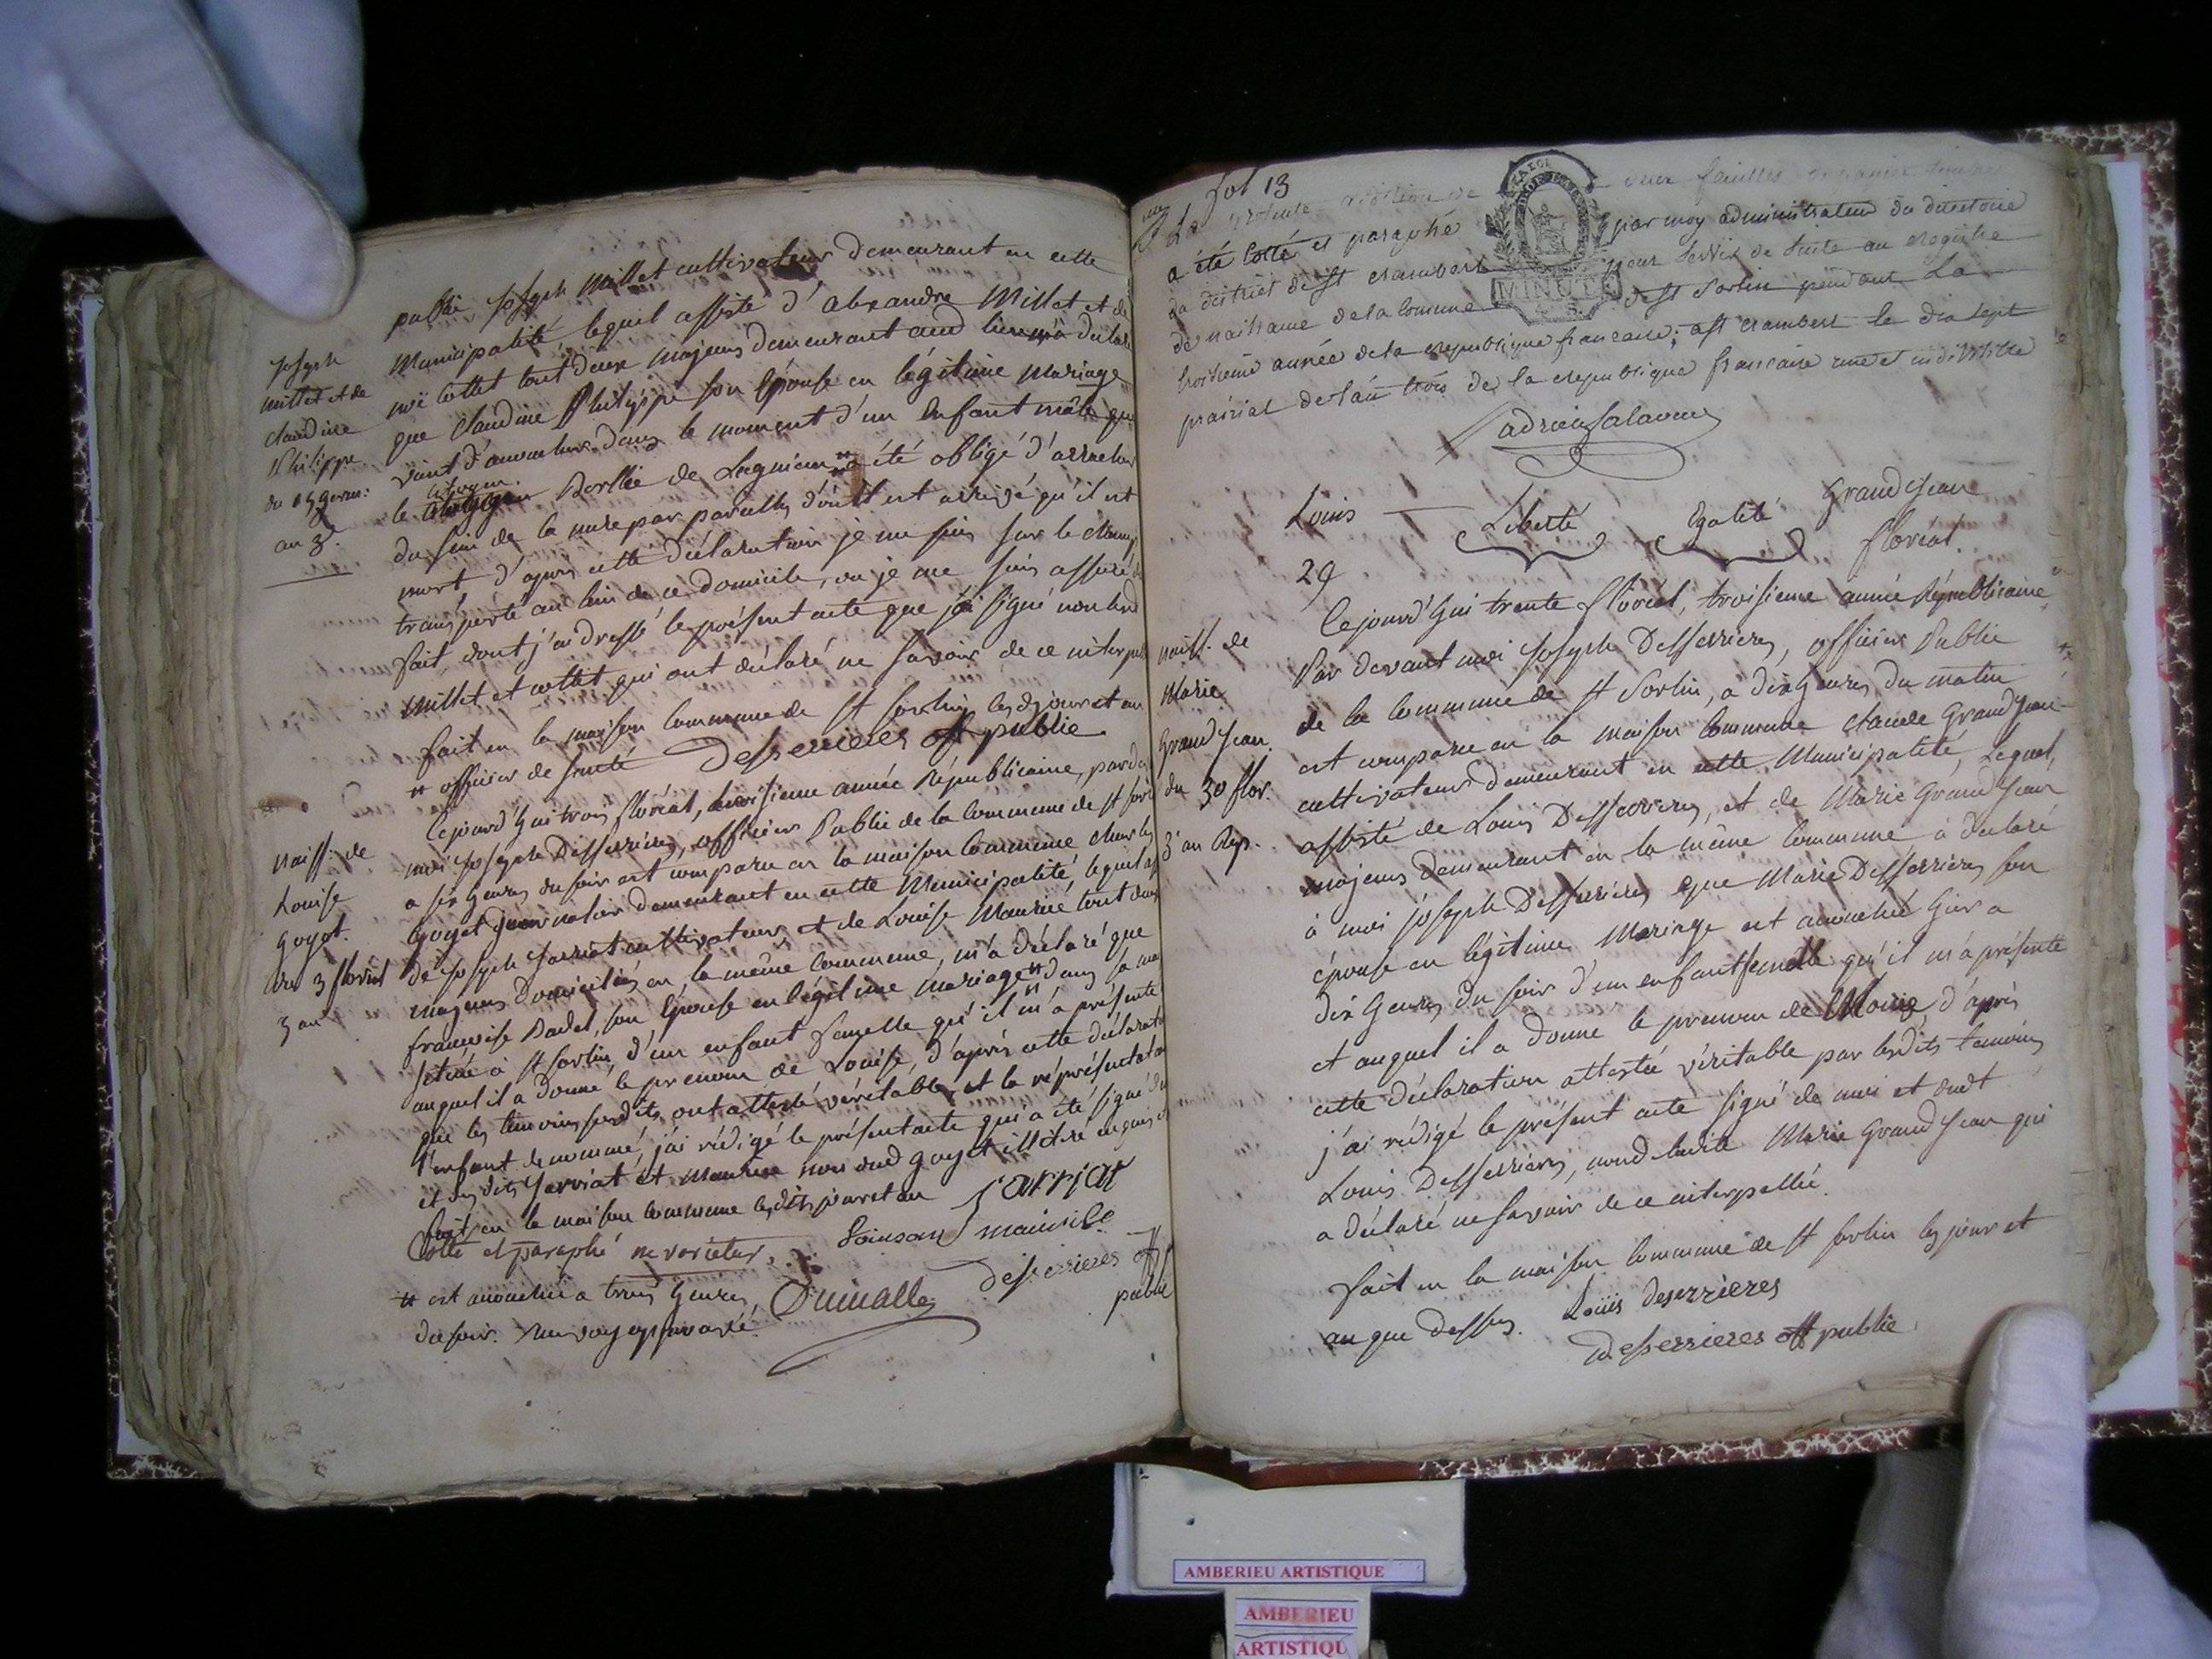 Joseph
Millet et de
Claudine
Philippe
du 15 germ:
an 3e.
public, Joseph Millet cultivateur demeurant en cette
Municipalité, lequel assisté d'alexandre Millet et de
Cottet tout deux majeurs demeurant aud lieu m'a
que Claudine Philippe son Epouse en légitime mariage
vient d'accoucher dans le moment d'un enfant mâle que
citoyen
le Borllie de Lagnieu " a été obligé d'arracher
du sein de la mere par parcelles d'ou il est arrivé qu'il est
mort d'après cette déclaration je me suis sur le champ
transporté au lieu de ce domicile, ou je me suis assuré du
fait, dont j'ai dressé le présent acte que j'ai signé non lesd
Millet et cottet qui ont déclaré ne savoir de ce interpel
fait en la maison commune de st sorlin lesd jour et an
" officier de santé Desserrieres off public
naiss. de
Louise
Goyot.
du 3 floréal
3 an
Cejourd'hui trois floréal, troisieme année Républicaine, parde
moi Joseph Desserrieres, officier Public de la commune de st sorl
a six heures du soir est comparu en la maison commune Charles
Goyet journalier demeurant en cette Municipalité lequel as
de Joseph Sarriat cultivateur et de Louise Maurice tout deux
majeurs domiciliés en la même commune, m'a déclaré que
francoise Badel, son Epouse en légitime mariage " dans sa mai
située à st sorlin d'un enfant femelle qu'il m'a présenté
auquel il a donné le prenom de Louise, d'après cette déclarat
que les temoins susdits ont attesté véritable, et la représentation
l'enfant denommé, j'ai rédigé le présent acte qui a été signé de
et desdits Sarriat et Maurice non dud goyet illitéré enquis
fait en la maison commune lesdits jour et an Sarriat
Cotté et paraphé ne varietur,
Desserrieres off
public
" est accouchée a trois heures
du soir. Renvoy approuvé
Dumalle
fol 13
a été cotté et paraphé par moy administrateur du directoire
du district de st rambert pour servir de suite au registre
de naissance de la commune de st Sorlin pendant La
troisieme année de la republique francaise; a st rambert le dix sept
prairial de l'an trois de la republique francaise une et indivisible
MINUTE
Louis — Liberté Egalité Grand Jean
29 floréal.
naiss. de
Marie
Grand Jean.
du 30 flor.
3e an Rep.
Cejourd'hui trente floréal, troisieme année Républicaine
Par devant moi Joseph Desserrieres, officier Public
de la commune de st Sorlin, a dix heures du matin
est comparu en la maison commune claude Grand Jean
cultivateur demeurant en cette Municipalité, Lequel,
assisté de Louis Desserrieres, et de Marie Grand Jean
majeurs demeurant en la même commune à declaré
à moi joseph Desserrieres que Marie Desserrieres son
épouse en légitime Mariage est accouchée hier a
dix heures du soir d'un enfant femelle qu'il m'a présenté
et auquel il a donné le prenom de Marie, d'après
cette déclaration attestée véritable par lesdits temoins
j'ai rédigé le présent acte signé de moi et dudt
Louis Desserrieres, non de ladite Marie Grand Jean qui
a déclaré ne savoir de ce interpellée.
fait en la maison commune de st sorlin les jour et
an que dessus. Louis deserrieres
Deserrieres off public
AMBERIEU ARTISTIQUE
AMBERIEU
ARTISTIQU